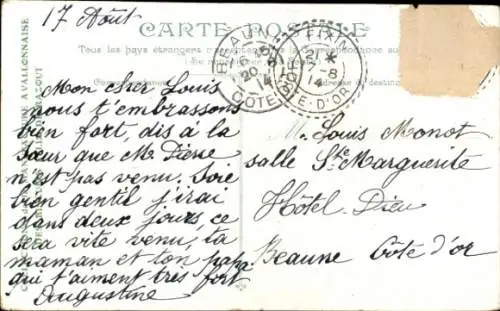 17 Août
CARTE POSTALE
Tous les pays étrangers
BEAUNE
20 -8
14
CÔTE-D'OR
FIXIN
21 -8
14
CÔTE-D'OR
Mon cher Louis
nous t'embrassons
bien fort, dis à la
Sœur que M. Pierre
n'est pas venu. Soie
bien gentil j'irai
dans deux jours, ce
sera vite venu, ta
maman et ton papa
qui t'aiment très fort
Augustine
M. Louis Monot
salle Ste Marguerite
Hôtel-Dieu
Beaune Côte d'or